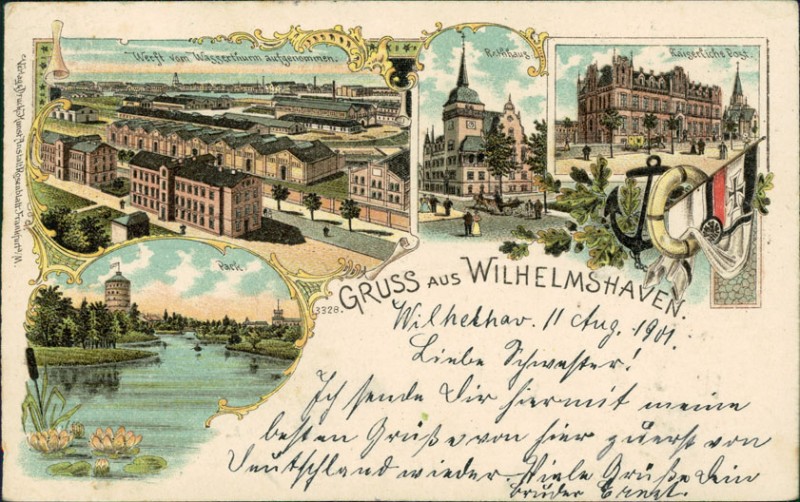 Werft vom Wasserthurm aufgenommen.
Rathhaus
Kaiserliche Post.
Park
3328.
GRUSS AUS WILHELMSHAVEN.
Wilhelhav. 11 Aug. 1901.
Liebe Schwester!
Ich sende Dir hiermit meine
besten Grüße von hier zuerst von
Deutschland wieder. Viele Grüße Dein
Bruder Ernst.
Frankfurt a/M.